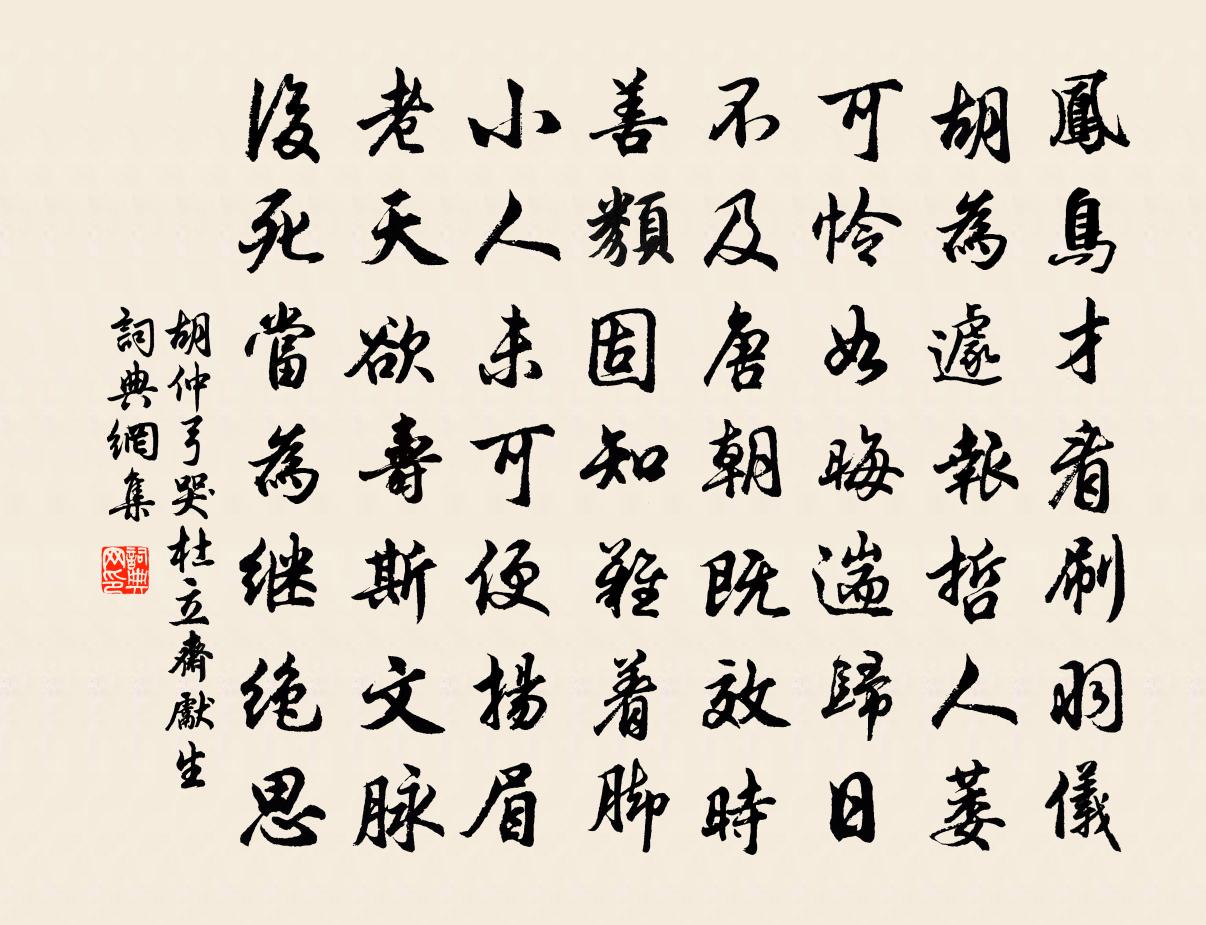 鳳鳥才看刷羽儀
胡為遽報哲人萎
可怜如晦遄歸日
不及唐朝既效時
善類固知難着脚
小人未可便揚眉
老天欲壽斯文脉
後死當為继絶思
胡仲弓哭杜立齋獻生
詞典網集
詞典网印